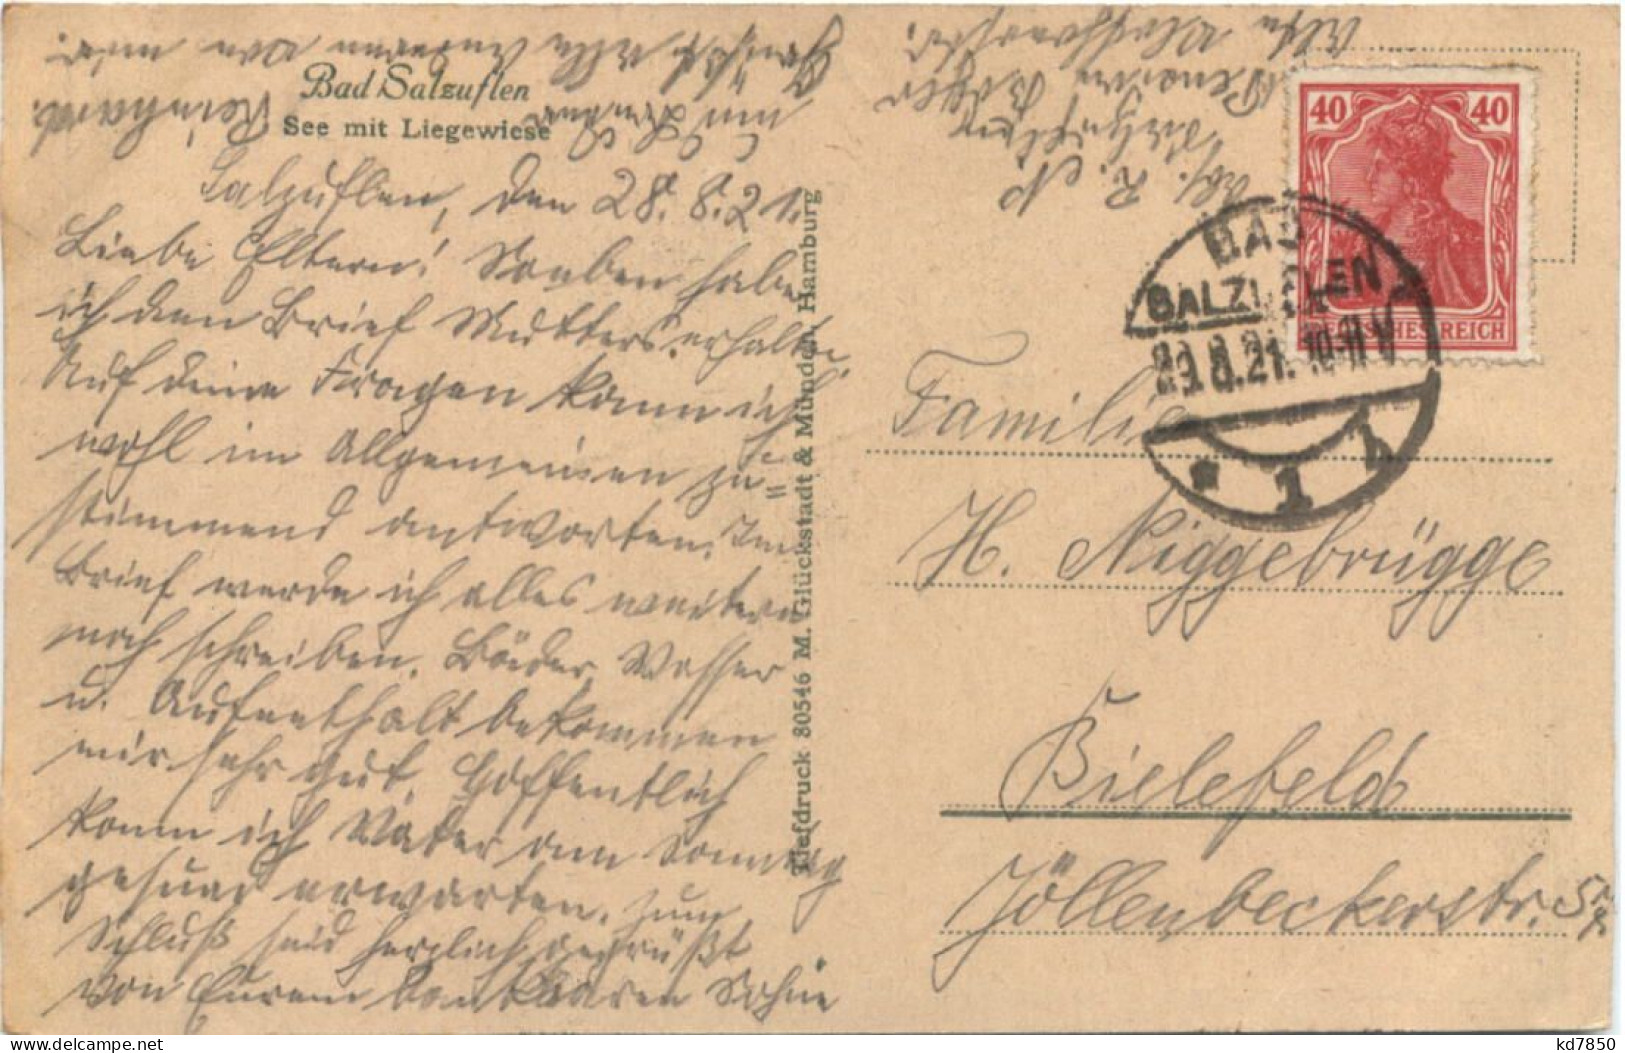 Bad Salzuflen
See mit Liegewiese
Salzuflen, den 28. 8. 21.
Liebe Eltern! Soeben habe
ich den Brief Mutters erhalten.
Auf deine Fragen kann ich
wohl im Allgemeinen zu=
stimmend antworten. Im
Brief werde ich alles weitere
noch schreiben. Bäder, Wasser
u. Aufenthalt bekommen
mir sehr gut. Hoffentlich
kann ich Vater am Sonntag
gesund erwarten. Zum
Schluß seid herzlich gegrüßt
von Eurem dankbaren Sohne
Reinhard.
Grüßt alle von mir.
Tiefdruck 80546 M. Glückstadt & Münden, Hamburg
Abs. R. N
Salzuflen
40 40
DEUTSCHES REICH
BAD
SALZUFLEN
29.8.21. 10-11 V
* 1
Familie
H. Niggebrügge
Bielefeld
Jöllenbeckerstr.
kd7850